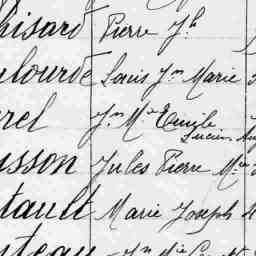 hisard Pierre Jh
lourde Louis Jn Marie
rel Jn Me Emile
Lucien Aug
sson Jules Pierre Me
tault Marie Joseph
teau Jn Mie